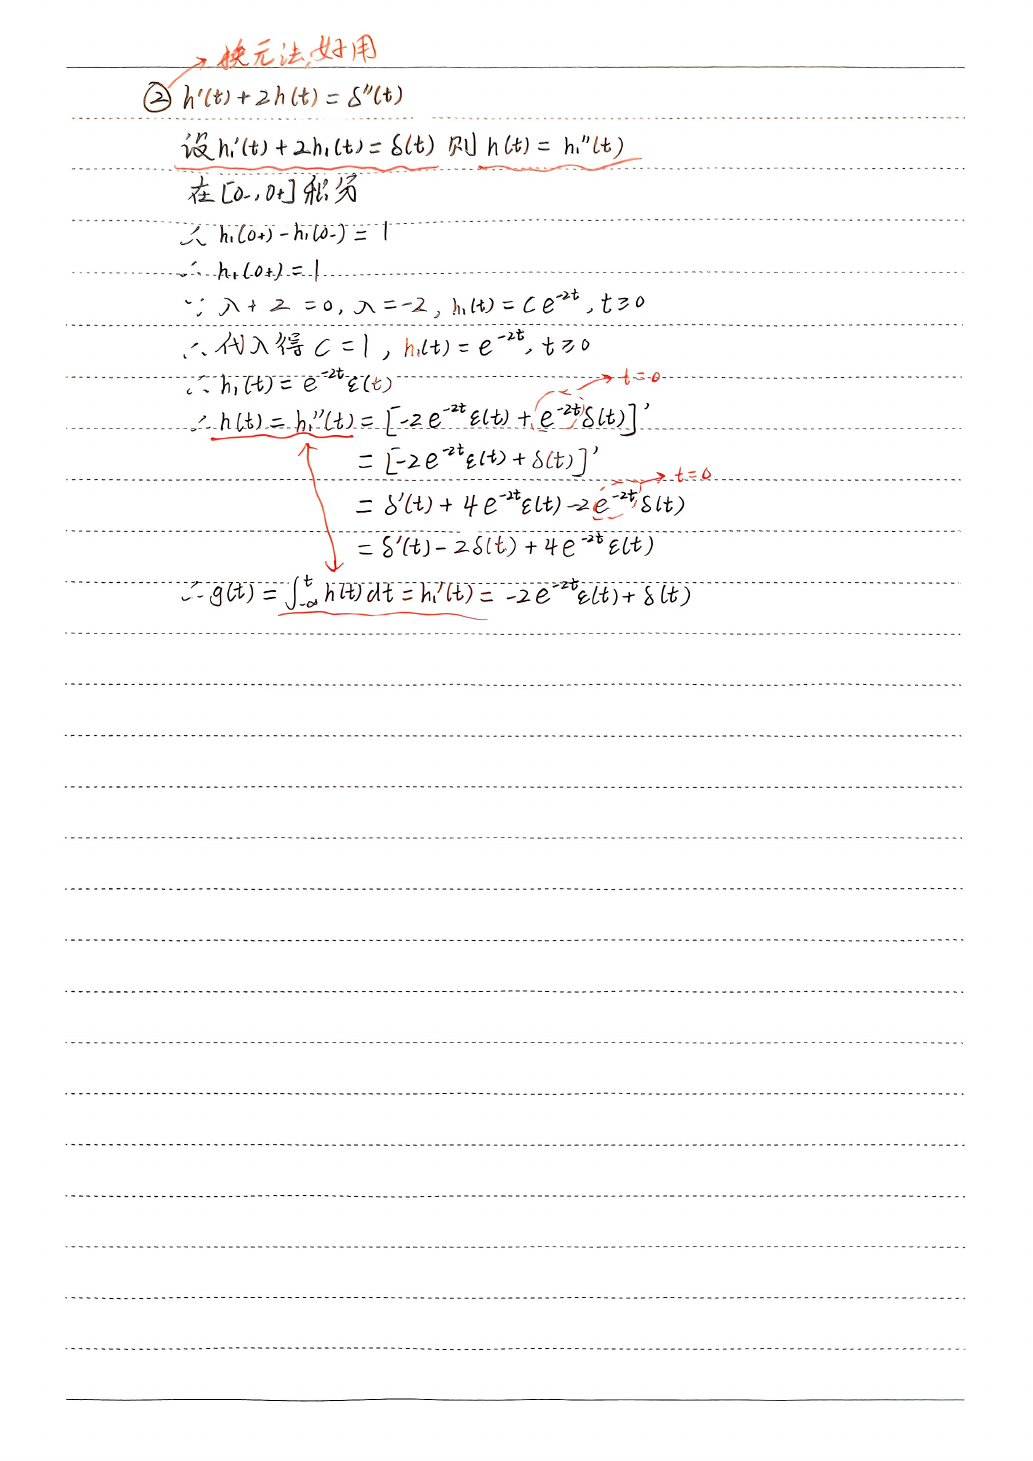 换元法,好用
② h'(t)+2h(t)=δ''(t)
设h₁'(t)+2h₁(t)=δ(t) 则 h(t)=h₁''(t)
在[0-,0+]积分
∴ h₁(0+)-h₁(0-)=1
∴ h₁(0+)=1
∵ λ+2=0, λ=-2, h₁(t)=Ce^{-2t}, t≥0
∴ 代入得 C=1, h₁(t)=e^{-2t}, t≥0
∴ h₁(t)=e^{-2t}ε(t)
→ t=0
∴ h(t)=h₁''(t)=[-2e^{-2t}ε(t)+e^{-2t}δ(t)]'
=[-2e^{-2t}ε(t)+δ(t)]'
→ t=0
=δ'(t)+4e^{-2t}ε(t)-2e^{-2t}δ(t)
=δ'(t)-2δ(t)+4e^{-2t}ε(t)
∴ g(t)=∫_{-∞}^{t}h(t)dt=h₁'(t)=-2e^{-2t}ε(t)+δ(t)